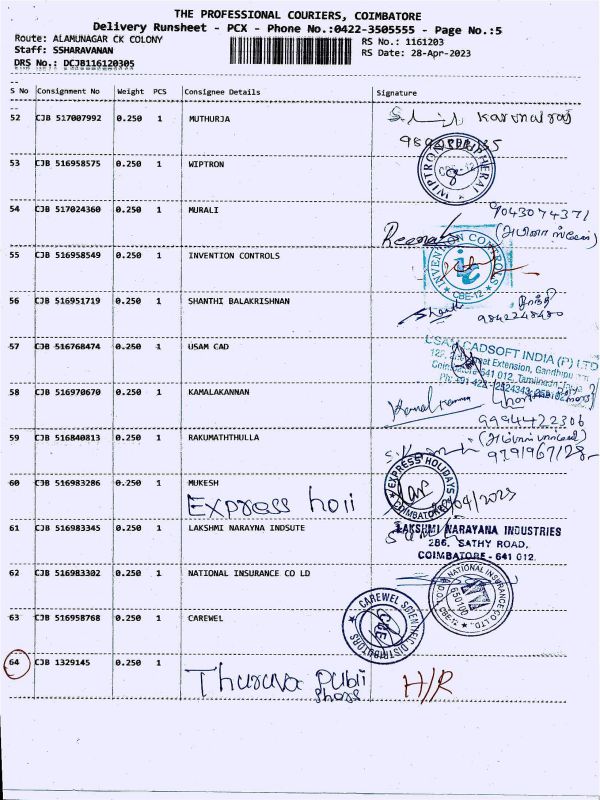 THE PROFESSIONAL COURIERS, COIMBATORE
Delivery Runsheet - PCX - Phone No.:0422-3505555 - Page No.:5
Route: ALAMUNAGAR CK COLONY
RS No.: 1161203
Staff: SSHARAVANAN
RS Date: 28-Apr-2023
DRS No.: DCJB116120305
S No Consignment No Weight PCS Consignee Details Signature
52 CJB 517007992 0.250 1 MUTHURJA
53 CJB 516958575 0.250 1 WIPTRON
54 CJB 517024360 0.250 1 MURALI
9043074371
55 CJB 516958549 0.250 1 INVENTION CONTROLS
INVENTION CONTROLS
CBE-12
56 CJB 516951719 0.250 1 SHANTHI BALAKRISHNAN
9842248480
57 CJB 516768474 0.250 1 USAM CAD
USAM CADSOFT INDIA (P) LTD
58 CJB 516970670 0.250 1 KAMALAKANNAN
9994422306
59 CJB 516840813 0.250 1 RAKUMATHTHULLA
60 CJB 516983286 0.250 1 MUKESH
Express holi
EXPRESS HOLIDAYS
COIMBATORE
61 CJB 516983345 0.250 1 LAKSHMI NARAYNA INDSUTE
LAKSHMI NARAYANA INDUSTRIES
286, SATHY ROAD,
COIMBATORE - 641 012.
62 CJB 516983302 0.250 1 NATIONAL INSURANCE CO LD
NATIONAL INSURANCE CO LTD.
63 CJB 516958768 0.250 1 CAREWEL
CAREWEL SCIENTIFIC DISTRIBUTORS
CBE
64 CJB 1329145 0.250 1
H/R